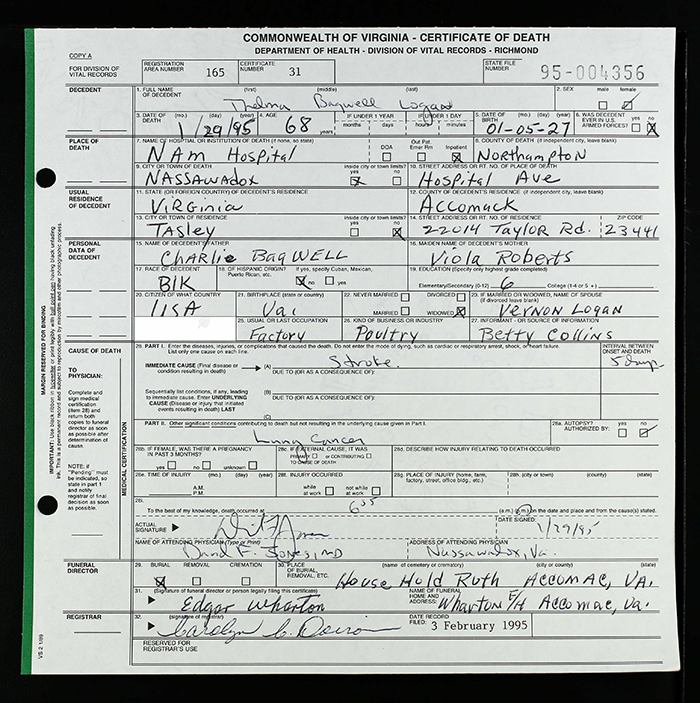 COMMONWEALTH OF VIRGINIA - CERTIFICATE OF DEATH
DEPARTMENT OF HEALTH - DIVISION OF VITAL RECORDS - RICHMOND
COPY A
FOR DIVISION OF VITAL RECORDS
REGISTRATION AREA NUMBER 165
CERTIFICATE NUMBER 31
STATE FILE NUMBER 95-004356
DECEDENT
1. FULL NAME OF DECEDENT (first) (middle) (last)
Thelma Bagwell Logan
2. SEX male female
3. DATE OF DEATH (mo.) (day) (year) 1/29/95
4. AGE 68 years
IF UNDER 1 YEAR months days
IF UNDER 1 DAY hours minutes
5. DATE OF BIRTH (mo.) (day) (year) 01-05-27
6. WAS DECEDENT EVER IN U.S. ARMED FORCES? yes no
PLACE OF DEATH
7. NAME OF HOSPITAL OR INSTITUTION OF DEATH (if none, so state)
NAM Hospital
DOA Out Pat. Emer Rm Inpatient
8. COUNTY OF DEATH (if independent city, leave blank)
Northampton
9. CITY OR TOWN OF DEATH inside city or town limits? yes no
NASSAWADOX
10. STREET ADDRESS OR RT. NO. OF PLACE OF DEATH
Hospital Ave
USUAL RESIDENCE OF DECEDENT
11. STATE (OR FOREIGN COUNTRY) OF DECEDENT'S RESIDENCE
Virginia
12. COUNTY OF DECEDENT'S RESIDENCE (if independent city, leave blank)
Accomack
13. CITY OR TOWN OF RESIDENCE inside city or town limits? yes no
TASley
14. STREET ADDRESS OR RT. NO. OF RESIDENCE ZIP CODE
22014 Taylor Rd. 23441
PERSONAL DATA OF DECEDENT
15. NAME OF DECEDENT'S FATHER
Charlie BagWELL
16. MAIDEN NAME OF DECEDENT'S MOTHER
Viola Roberts
17. RACE OF DECEDENT
Blk
18. OF HISPANIC ORIGIN? If yes, specify Cuban, Mexican, Puerto Rican, etc.
no yes
19. EDUCATION (Specify only highest grade completed)
Elementary/Secondary (0-12) 6 College (1-4 or 5 +)
20. CITIZEN OF WHAT COUNTRY
USA
21. BIRTHPLACE (state or country)
Va.
22. NEVER MARRIED DIVORCED
MARRIED WIDOWED
23. IF MARRIED OR WIDOWED, NAME OF SPOUSE (if divorced, leave blank)
VERNON LOGAN
25. USUAL OR LAST OCCUPATION
Factory
26. KIND OF BUSINESS OR INDUSTRY
Poultry
27. INFORMANT - OR SOURCE OF INFORMATION
Betty Collins
CAUSE OF DEATH
28. PART I. Enter the diseases, injuries, or complications that caused the death. Do not enter the mode of dying, such as cardiac or respiratory arrest, shock, or heart failure. List only one cause on each line.
INTERVAL BETWEEN ONSET AND DEATH
TO PHYSICIAN:
IMMEDIATE CAUSE (Final disease or condition resulting in death) (A) Stroke 5 days
DUE TO (OR AS A CONSEQUENCE OF):
Complete and sign medical certification (item 28) and return both copies to funeral director as soon as possible after determination of cause.
Sequentially list conditions, if any, leading to immediate cause. Enter UNDERLYING CAUSE (Disease or injury that initiated events resulting in death) LAST
(B)
DUE TO (OR AS A CONSEQUENCE OF):
(C)
PART II. Other significant conditions contributing to death but not resulting in the underlying cause given in Part I.
Lung Cancer
28a. AUTOPSY? yes no
AUTHORIZED BY:
NOTE: If "Pending" must be indicated, so state in part 1 and notify registrar of final decision as soon as possible.
MEDICAL CERTIFICATION
28b. IF FEMALE, WAS THERE A PREGNANCY IN PAST 3 MONTHS?
yes no unknown
28c. IF EXTERNAL CAUSE, IT WAS
PRIMARY or CONTRIBUTING TO CAUSE OF DEATH
28d. DESCRIBE HOW INJURY RELATING TO DEATH OCCURRED
28e. TIME OF INJURY (mo.) (day) (year)
A.M. P.M.
28f. INJURY OCCURRED
while at work not while at work
28g. PLACE OF INJURY (home, farm, factory, street, office bldg., etc.)
28h. (city or town) (county) (state)
28i. To the best of my knowledge, death occurred at 6 (a.m.) (p.m.) on the date and place and from the cause(s) stated.
ACTUAL SIGNATURE
DATE SIGNED: 1/29/95
NAME OF ATTENDING PHYSICIAN (Type or Print)
David F. Jones, MD
ADDRESS OF ATTENDING PHYSICIAN
Nassawadox, Va.
FUNERAL DIRECTOR
29. BURIAL REMOVAL CREMATION
30. PLACE OF BURIAL, REMOVAL, ETC. (name of cemetery or crematory) (city or county) (state)
House Hold Ruth Accomac, VA.
31. (Signature of funeral director or person legally filing this certificate)
Edgar Wharton
NAME OF FUNERAL HOME AND ADDRESS:
Wharton F/H Accomac, Va.
REGISTRAR
32. (signature of registrar)
DATE RECORD FILED: 3 February 1995
RESERVED FOR REGISTRAR'S USE
VS 2 1/89
MARGIN RESERVED FOR BINDING
IMPORTANT: Use black ribbon in typewriter or print legibly with ball point pen having black unfading ink. This is a permanent record and subject to reproduction by microfilm and other photographic process.